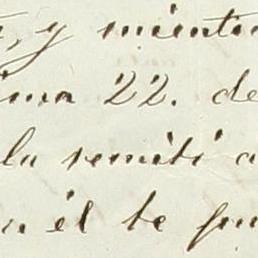 , y mientr
ma 22. de
la remiti a
a él te pu